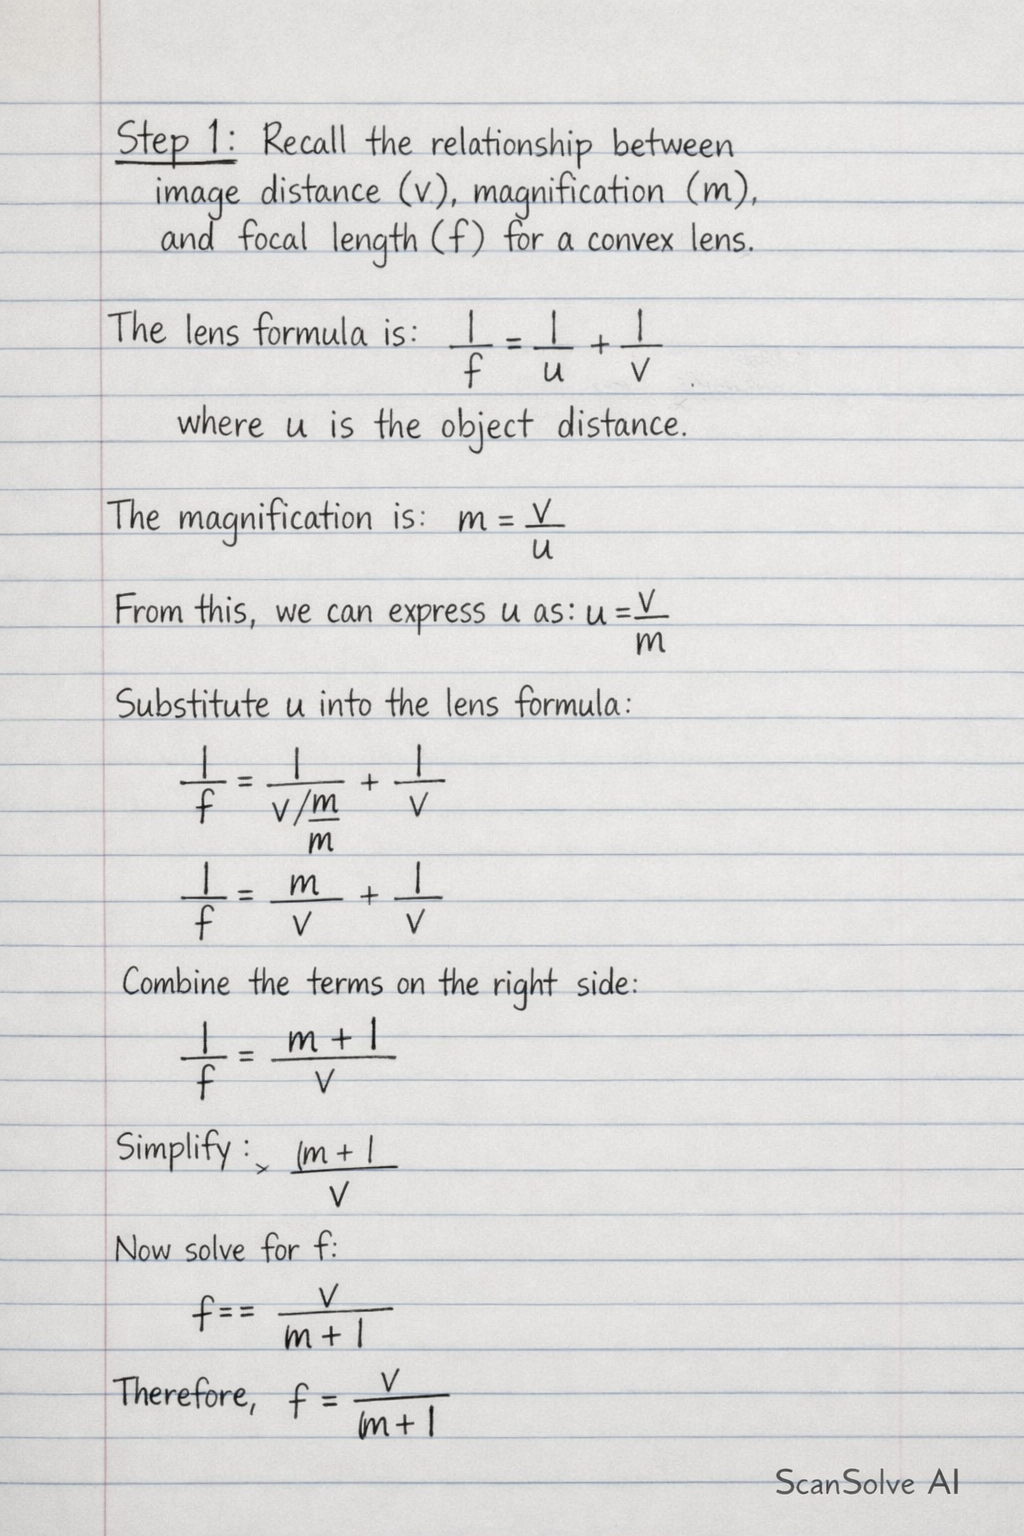 Step 1: Recall the relationship between
image distance (v), magnification (m),
and focal length (f) for a convex lens.
The lens formula is: 1/f = 1/u + 1/v
where u is the object distance.
The magnification is: m = v/u
From this, we can express u as: u = v/m
Substitute u into the lens formula:
1/f = 1/(v/m/m) + 1/v
1/f = m/v + 1/v
Combine the terms on the right side:
1/f = (m + 1)/v
Simplify: (m + 1/v
Now solve for f:
f == v/(m + 1)
Therefore, f = v/(m + 1)
ScanSolve AI